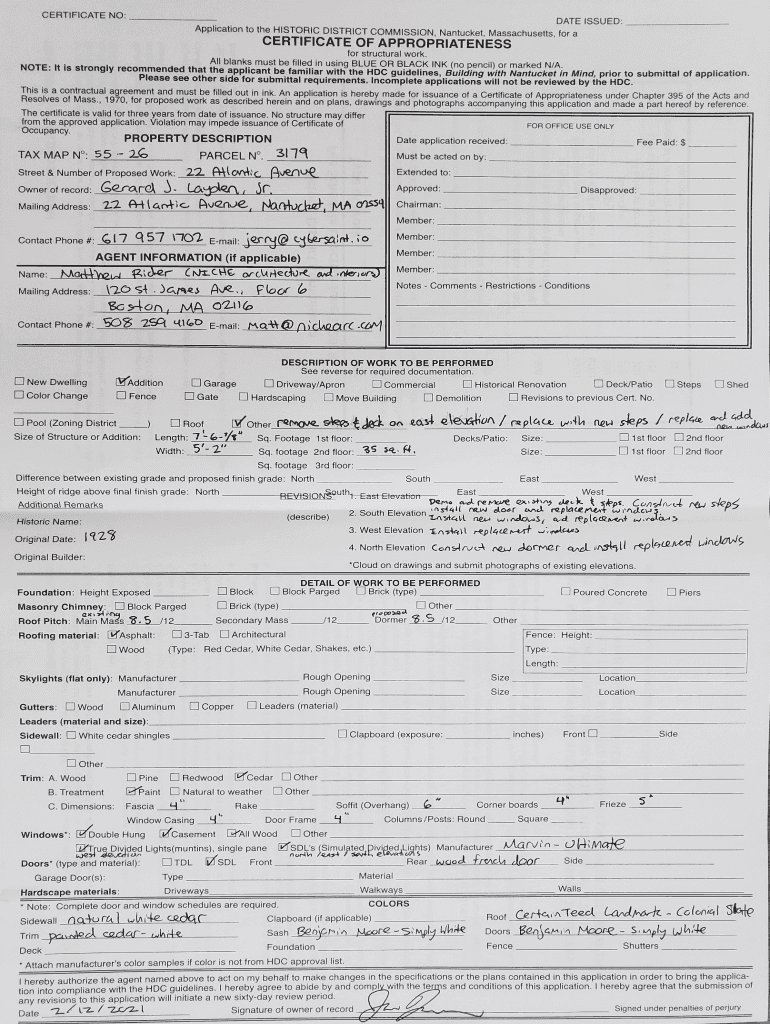 CERTIFICATE NO:
DATE ISSUED:
Application to the HISTORIC DISTRICT COMMISSION, Nantucket, Massachusetts, for a
CERTIFICATE OF APPROPRIATENESS
for structural work.
All blanks must be filled in using BLUE OR BLACK INK (no pencil) or marked N/A.
NOTE: It is strongly recommended that the applicant be familiar with the HDC guidelines, Building with Nantucket in Mind, prior to submittal of application.
Please see other side for submittal requirements. Incomplete applications will not be reviewed by the HDC.
This is a contractual agreement and must be filled out in ink. An application is hereby made for issuance of a Certificate of Appropriateness under Chapter 395 of the Acts and
Resolves of Mass., 1970, for proposed work as described herein and on plans, drawings and photographs accompanying this application and made a part hereof by reference.
The certificate is valid for three years from date of issuance. No structure may differ
from the approved application. Violation may impede issuance of Certificate of
Occupancy.
PROPERTY DESCRIPTION
TAX MAP Nº: 55-26 PARCEL Nº. 3179
Street & Number of Proposed Work: 22 Atlantic Avenue
Owner of record: Gerard J. Layden, Jr.
Mailing Address: 22 Atlantic Avenue, Nantucket, MA 02554
Contact Phone #: 617 957 1702 E-mail: jerry@cybersaint.io
AGENT INFORMATION (if applicable)
Name: Matthew Rider (NICHE architecture and interiors)
Mailing Address: 120 St. James Ave., Floor 6
Boston, MA 02116
Contact Phone #: 508 259 4160 E-mail: matt@nichearc.com
FOR OFFICE USE ONLY
Date application received: Fee Paid: $
Must be acted on by:
Extended to:
Approved: Disapproved:
Chairman:
Member:
Member:
Member:
Member:
Notes - Comments - Restrictions - Conditions
DESCRIPTION OF WORK TO BE PERFORMED
See reverse for required documentation.
☐ New Dwelling ☑ Addition ☐ Garage ☐ Driveway/Apron ☐ Commercial ☐ Historical Renovation ☐ Deck/Patio ☐ Steps ☐ Shed
☐ Color Change ☐ Fence ☐ Gate ☐ Hardscaping ☐ Move Building ☐ Demolition ☐ Revisions to previous Cert. No.
☐ Pool (Zoning District ) ☐ Roof ☑ Other remove steps & deck on east elevation / replace with new steps / replace and add new windows
Size of Structure or Addition: Length: 7'-6-7/8" Sq. Footage 1st floor: Decks/Patio: Size: ☐ 1st floor ☐ 2nd floor
Width: 5'-2" Sq. footage 2nd floor: 35 sq. ft. Size: ☐ 1st floor ☐ 2nd floor
Sq. footage 3rd floor:
Difference between existing grade and proposed finish grade: North South East West
Height of ridge above final finish grade: North South East West
Additional Remarks
REVISIONS* 1. East Elevation Demo and remove existing deck & steps. Construct new steps
install new door and replacement windows.
(describe) 2. South Elevation Install new windows, and replacement windows
Historic Name:
3. West Elevation Install replacement windows
Original Date: 1928
4. North Elevation Construct new dormer and install replacement windows
Original Builder:
*Cloud on drawings and submit photographs of existing elevations.
DETAIL OF WORK TO BE PERFORMED
Foundation: Height Exposed ☐ Block ☐ Block Parged ☐ Brick (type) ☐ Poured Concrete ☐ Piers
Masonry Chimney: ☐ Block Parged ☐ Brick (type) ☐ Other
Roof Pitch: Main Mass existing 8.5 /12 Secondary Mass /12 proposed Dormer 8.5 /12 Other
Roofing material: ☑ Asphalt: ☐ 3-Tab ☐ Architectural
☐ Wood (Type: Red Cedar, White Cedar, Shakes, etc.)
Fence: Height:
Type:
Length:
Skylights (flat only): Manufacturer Rough Opening Size Location
Manufacturer Rough Opening Size Location
Gutters: ☐ Wood ☐ Aluminum ☐ Copper ☐ Leaders (material)
Leaders (material and size):
Sidewall: ☐ White cedar shingles ☐ Clapboard (exposure: inches) Front ☐ Side
☐
☐ Other
Trim: A. Wood ☐ Pine ☐ Redwood ☑ Cedar ☐ Other
B. Treatment ☑ Paint ☐ Natural to weather ☐ Other
C. Dimensions: Fascia 4" Rake Soffit (Overhang) 6" Corner boards 4" Frieze 5"
Window Casing 4" Door Frame 4" Columns/Posts: Round Square
Windows*: ☑ Double Hung ☑ Casement ☑ All Wood ☐ Other
☑ True Divided Lights(muntins), single pane ☑ SDL's (Simulated Divided Lights) Manufacturer Marvin - Ultimate
west elevation north/east/south elevations
Doors* (type and material): ☐ TDL ☑ SDL Front Rear wood french door Side
Garage Door(s): Type Material
Hardscape materials: Driveways Walkways Walls
* Note: Complete door and window schedules are required.
COLORS
Sidewall natural white cedar Clapboard (if applicable) Roof CertainTeed Landmark - Colonial Slate
Trim painted cedar - white Sash Benjamin Moore - Simply White Doors Benjamin Moore - Simply White
Deck Foundation Fence Shutters
* Attach manufacturer's color samples if color is not from HDC approval list.
I hereby authorize the agent named above to act on my behalf to make changes in the specifications or the plans contained in this application in order to bring the applica-
tion into compliance with the HDC guidelines. I hereby agree to abide by and comply with the terms and conditions of this application. I hereby agree that the submission of
any revisions to this application will initiate a new sixty-day review period.
Date 2/12/2021 Signature of owner of record Signed under penalties of perjury